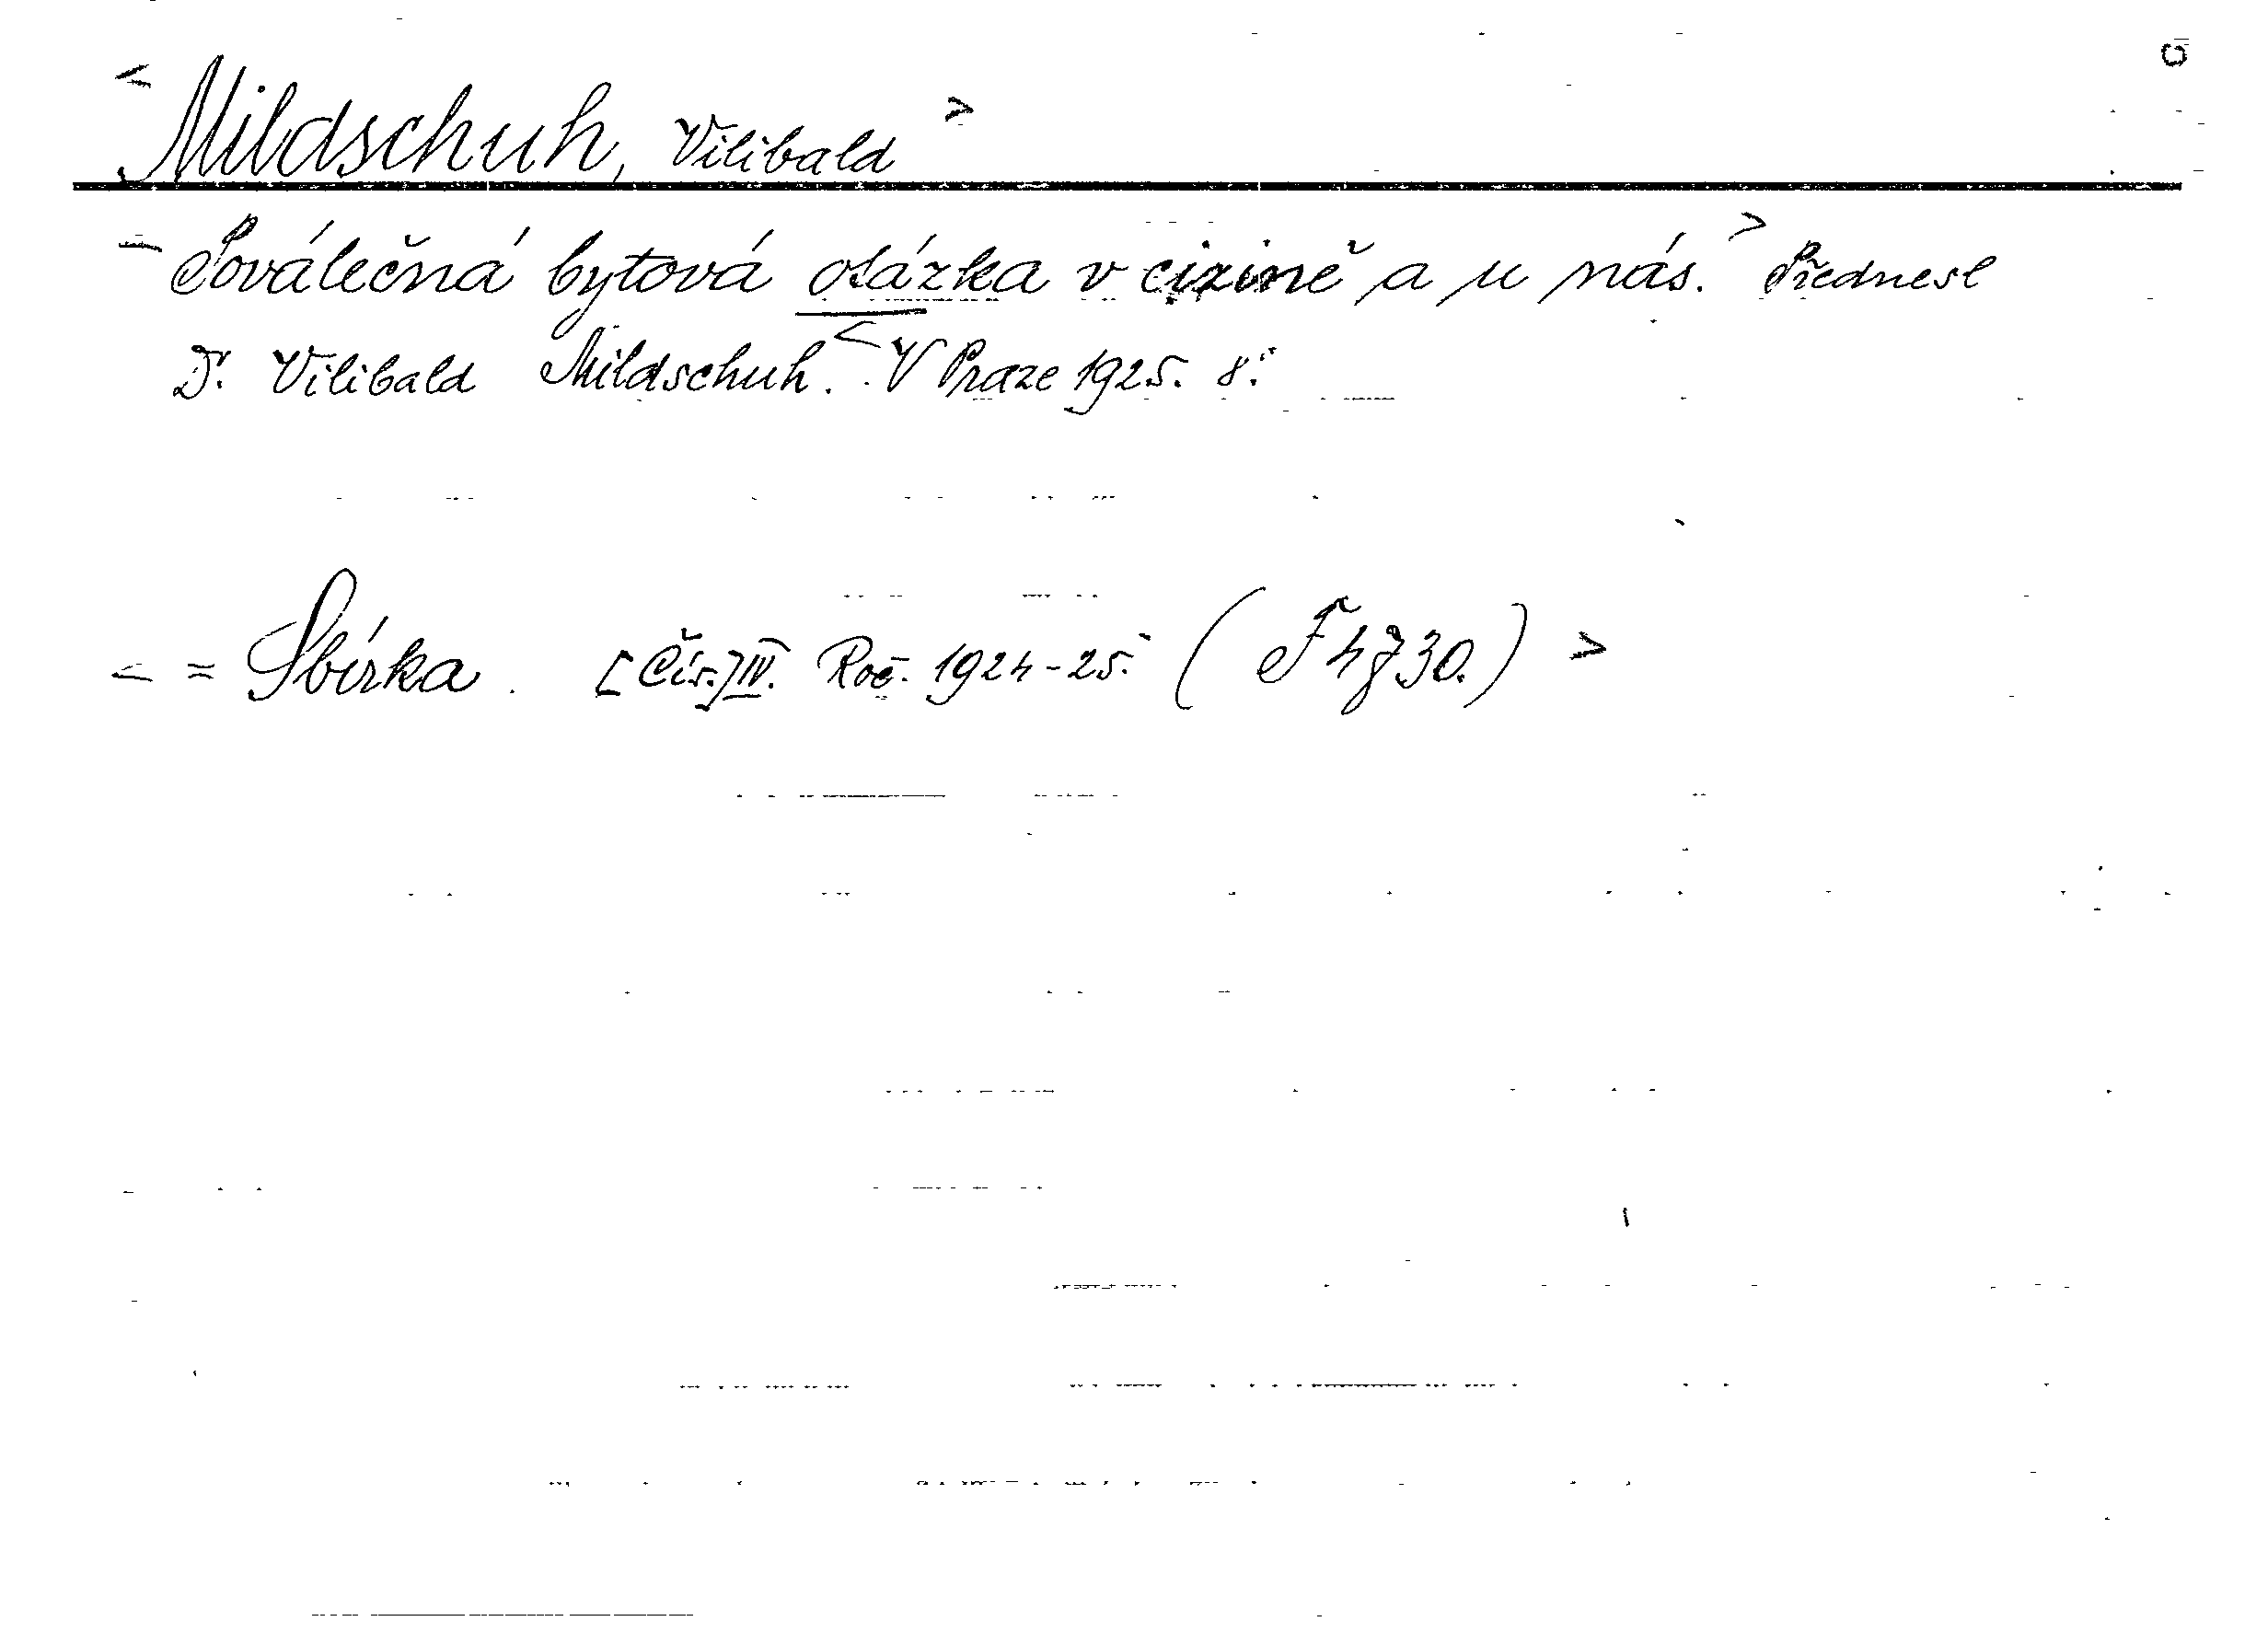 < Mildschuh, Vilibald >
< Poválečná bytová otázka v cizině a u nás. > Přednesl
Dr. Vilibald Mildschuh. < V Praze 1925. 8.°
< = Sbírka. [Čís.] IV. Roč. 1924-25. ( F 4730.) >